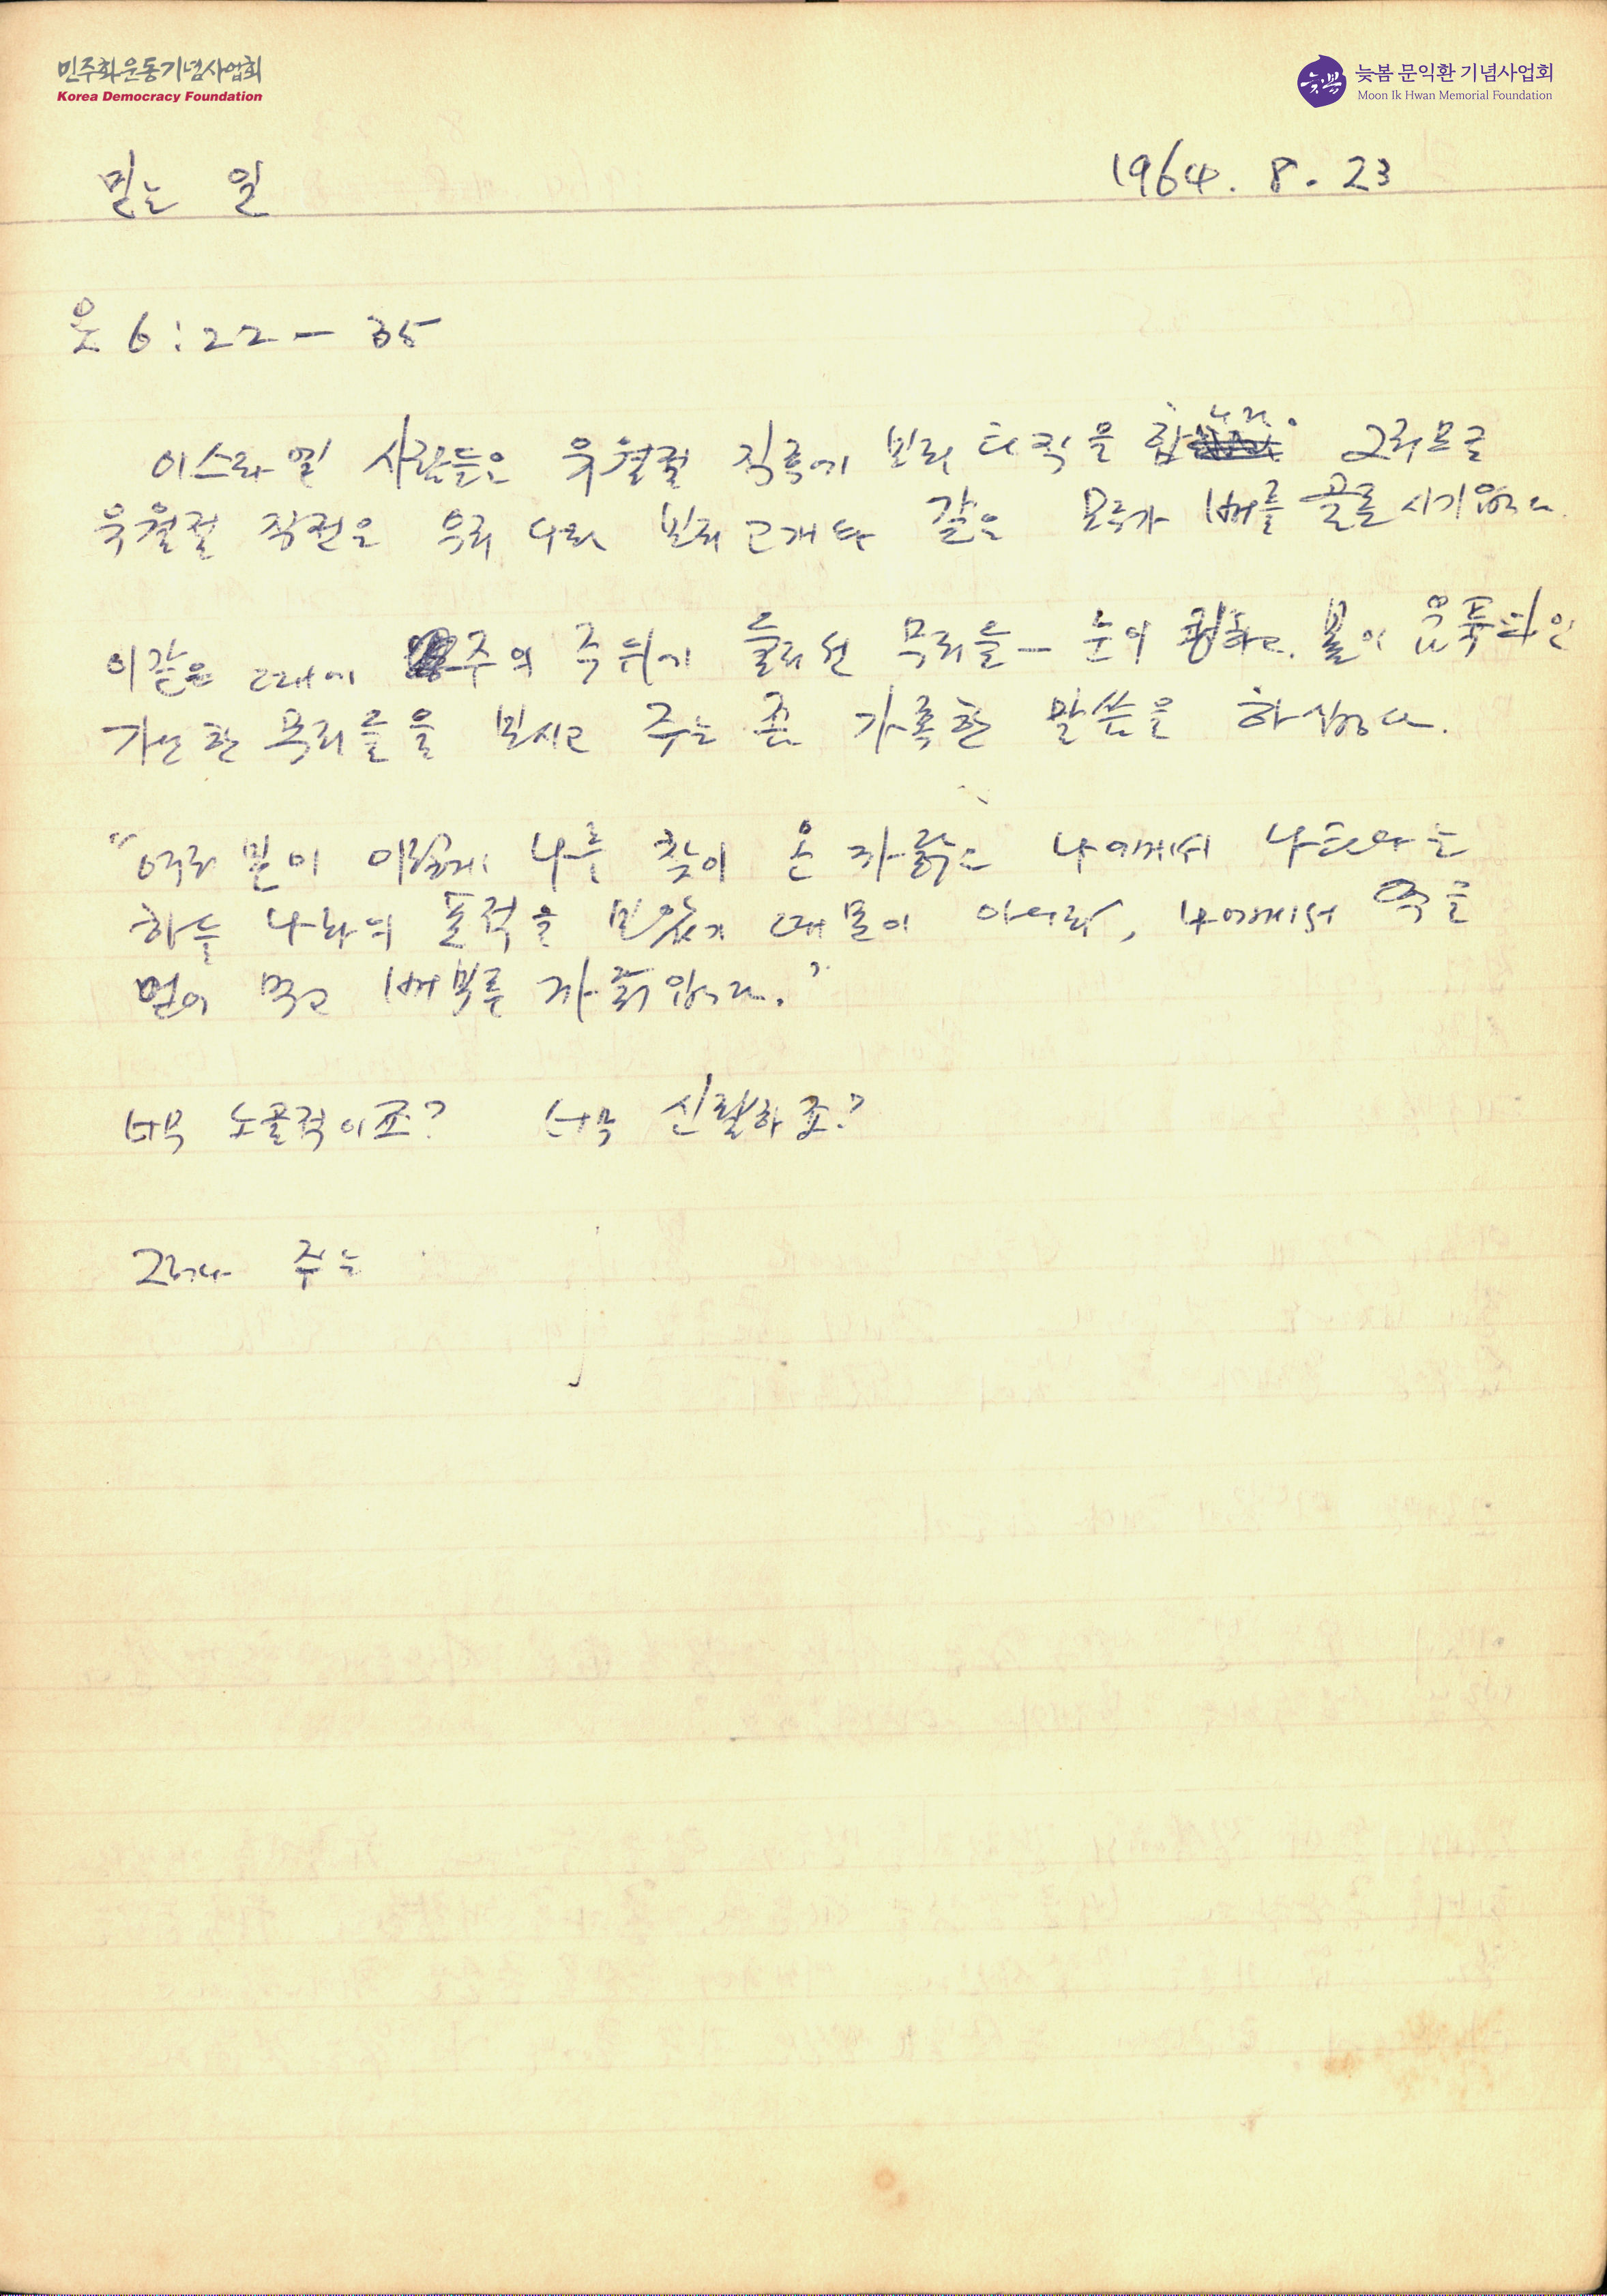 민주화운동기념사업회
Korea Democracy Foundation
늦봄 문익환 기념사업회
Moon Ik Hwan Memorial Foundation
믿는 일 1964. 8. 23
요 6:22-35
이스라엘 사람들은 유월절 직후에 보리 타작을 합니다. 그러므로
유월절 직전은 우리 나라 보리 고개와 같은 모두가 배를 곯른 시기였다.
이같은 때에 주의 주위에 둘러선 무리들- 눈이 퀭하고 볼이
가난한 무리들을 보시고 주는 좀 가혹한 말씀을 하셨다.
"여러분이 이렇게 나를 찾아 온 까닭은 나에게서 나타나는
하늘 나라의 표적을 보았기 때문이 아니라, 나에게서 떡을
얻어 먹고 배부른 까닭입니다."
너무 노골적이죠? 너무 신랄하죠?
그러나 주는